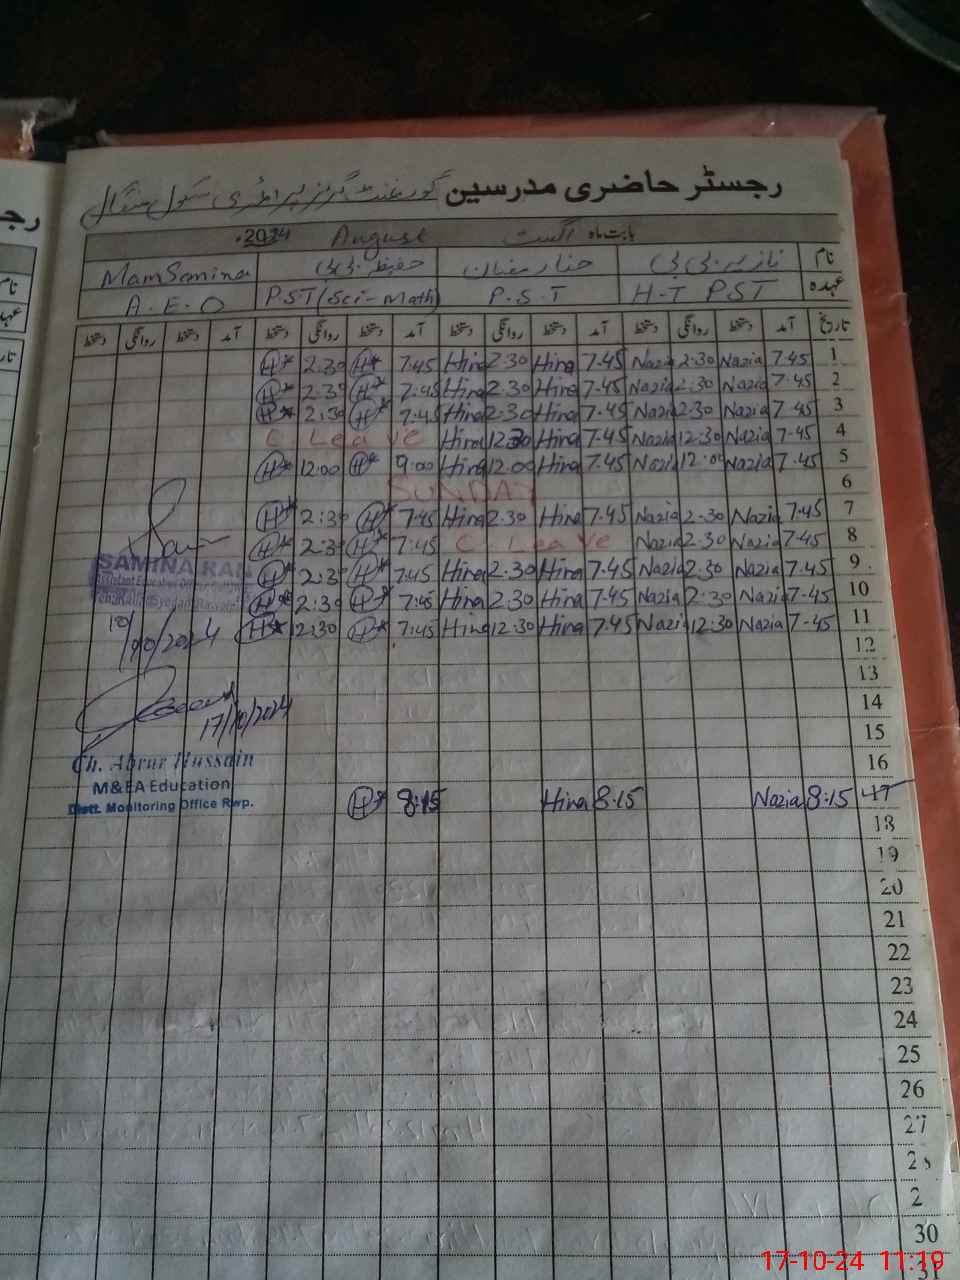 رجسٹر حاضری مدرسین گورنمنٹ گرلز پرائمری سکول
بابت ماہ اگست August 2024
نام نازیہ بی بی حنا رمضان حفیظہ بی بی Mam Samina
عہدہ H-T PST P.S.T P.ST (Sci-Math) A.E.O
تاریخ آمد دستخط روانگی دستخط آمد دستخط روانگی دستخط آمد دستخط روانگی دستخط آمد دستخط روانگی دستخط
1 7.45 Nazia 2.30 Nazia 7.45 Hina 2.30 Hina 7.45 H* 2.30 H*
2 7.45 Nazia 2.30 Nazia 7.45 Hina 2.30 Hina 7.45 H* 2.30 H*
3 7.45 Nazia 2.30 Nazia 7.45 Hina 2.30 Hina 7.45 H* 2:30 H*
4 7.45 Nazia 12.30 Nazia 7.45 Hina 12.30 Hina C Leave
5 7.45 Nazia 12.00 Nazia 7.45 Hina 12.00 Hina 9:00 H* 12:00 H*
6 SUNDAY
7 7.45 Nazia 2.30 Nazia 7.45 Hina 2.30 Hina 7.45 H* 2:30 H*
8 7.45 Nazia 2.30 Nazia C. Leave 7.45 H* 2:30 H*
9 7.45 Nazia 2.30 Nazia 7.45 Hina 2.30 Hina 7.45 H* 2:30 H*
10 7.45 Nazia 2.30 Nazia 7.45 Hina 2.30 Hina 7:45 H* 2:30 H*
11 7.45 Nazia 12.30 Nazi 7.45 Hina 12.30 Hina 7:45 H* 12:30 H*
SAMINA RAN
10/10/2024
12
13
14
17/10/2024
15
16
Ch. Abrar Hussain
M&EA Education
Distt. Monitoring Office Rwp.
17 8:15 Nazia 8:15 Hina 8:15 H*
18
19
20
21
22
23
24
25
26
27
2
2
30
31
17-10-24 11:19